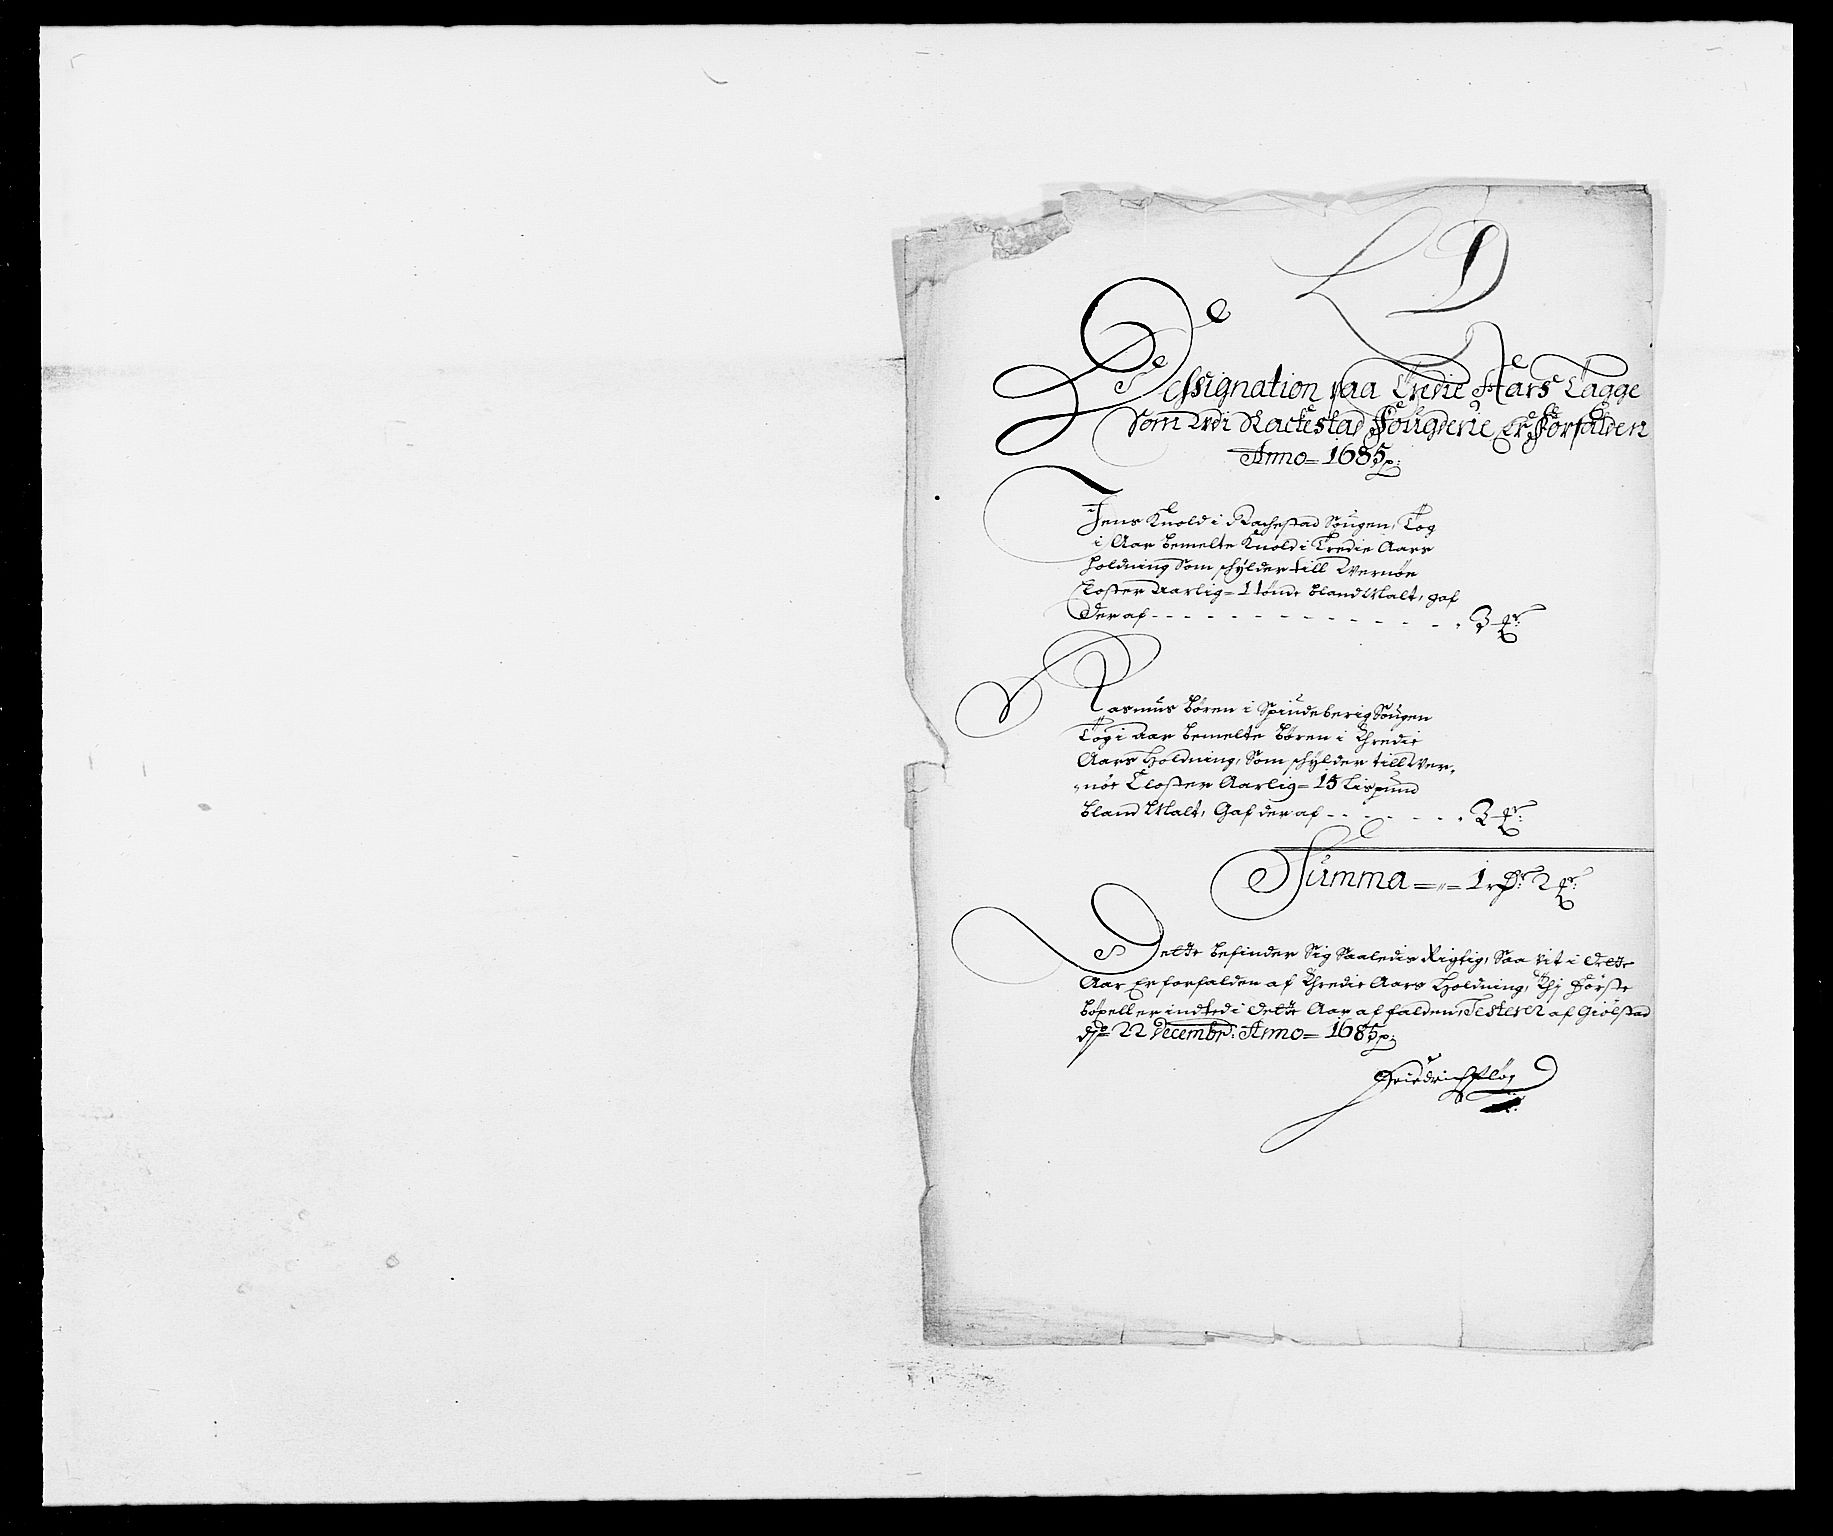 L D
Dessignation paa Tredie Aars Tagge
Som udi Rackestad Fougderie Er Forfalden
Anno = 1685
Jens Knold i Rachestad Sougen, Tog
i Aar bemelte Knold i Tredie Aars
Holdning Som schylder till Wernøe
Closter Aarlig = 1 tønde bland Malt, gaf
der af - - - - 3
Rasmus Børen i Spindeberig Sougen
Tog i aar bemelte Børen i Thredie
Aars Holdning, Som schylder till Wer-
nøe Closter Aarlig = 15 Lispund
bland Malt, Gaf der af - - - - 3
Summa = 1 rDr 2
Dette befinder Sig Saaledis Rigtig, Saa vit i dette
Aar Er forfalden af Thredie Aars Holdning, Thj Første
er indted i dette Aar affalden, Testerer af Giølstad
22 Decembr: Anno = 1685
Friedrich